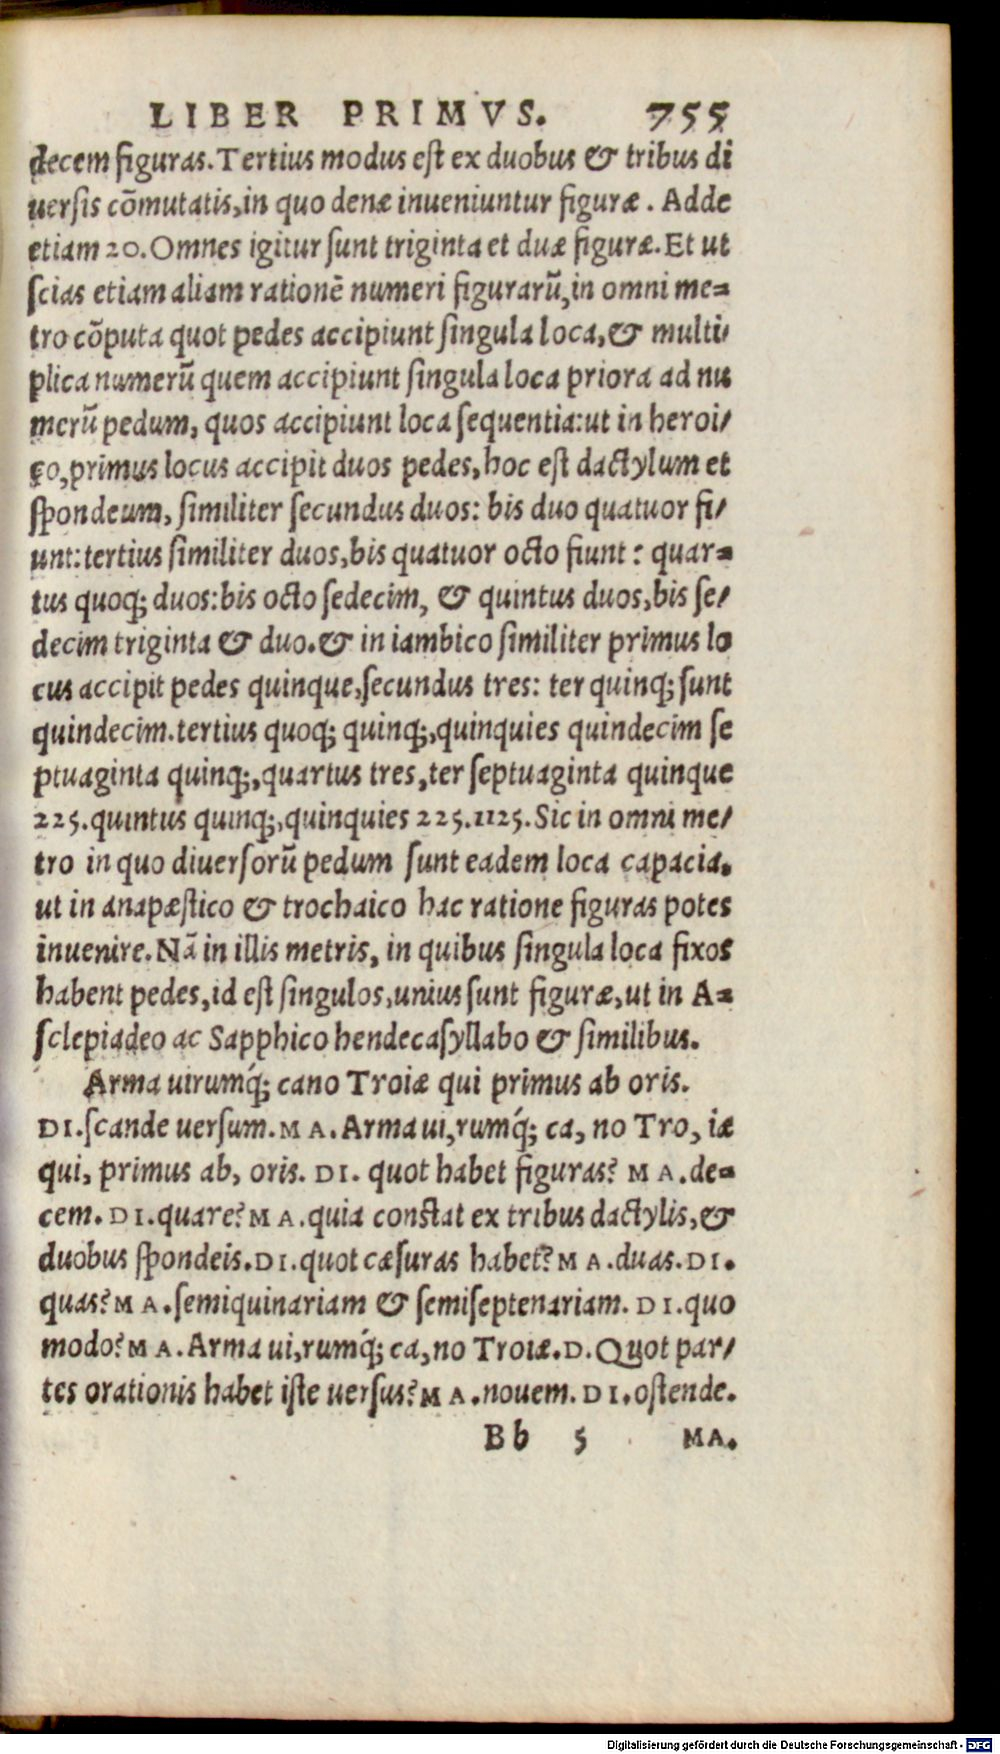 LIBER PRIMVS. 755
decem figuras. Tertius modus est ex duobus & tribus di
uersis cõmutatis, in quo denæ inueniuntur figuræ. Adde
etiam 20. Omnes igitur sunt triginta et duæ figuræ. Et ut
scias etiam aliam rationẽ numeri figurarũ, in omni me=
tro cõputa quot pedes accipiunt singula loca, & multi/
plica numerũ quem accipiunt singula loca priora ad nu
merũ pedum, quos accipiunt loca sequentia: ut in heroi/
co, primus locus accipit duos pedes, hoc est dactylum et
spondeum, similiter secundus duos: bis duo quatuor fi/
unt: tertius similiter duos, bis quatuor octo fiunt: quar=
tus quoq; duos: bis octo sedecim, & quintus duos, bis se/
decim triginta & duo. & in iambico similiter primus lo
cus accipit pedes quinque, secundus tres: ter quinq; sunt
quindecim. tertius quoq; quinq;, quinquies quindecim se
ptuaginta quinq;, quartus tres, ter septuaginta quinque
225. quintus quinq;, quinquies 225. 1125. Sic in omni me/
tro in quo diuersorũ pedum sunt eadem loca capacia.
ut in anapæstico & trochaico hac ratione figuras potes
inuenire. Nã in illis metris, in quibus singula loca fixos
habent pedes, id est singulos, unius sunt figuræ, ut in A=
sclepiadeo ac Sapphico hendecasyllabo & similibus.
Arma uirumq́; cano Troiæ qui primus ab oris.
DI. scande uersum. MA. Arma ui, rumq́; ca, no Tro, iæ
qui, primus ab, oris. DI. quot habet figuras? MA. de=
cem. DI. quare? MA. quia constat ex tribus dactylis, &
duobus spondeis. DI. quot cæsuras habet? MA. duas. DI.
quas? MA. semiquinariam & semiseptenariam. DI. quo
modo? MA. Arma ui, rumq́; ca, no Troiæ. D. Quot par/
tes orationis habet iste uersus? MA. nouem. DI. ostende.
Bb 5 MA.
Digitalisierung gefördert durch die Deutsche Forschungsgemeinschaft - DFG